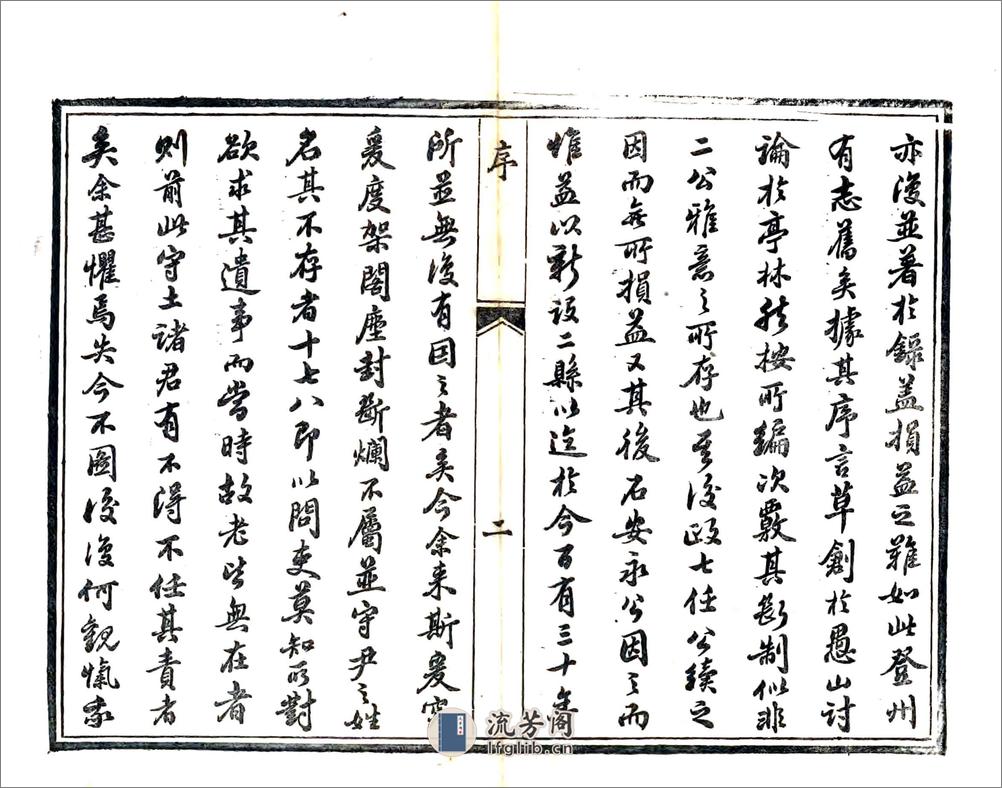 亦復並著於錄蓋損益之難如此登州
有志舊矣據其序言草創於愚山討
論於亭林然按所編次覈其斷制似非
二公雅意之所存也其後政七任公續之
因而無所損益又其後石安永公因之而
惟益以新設二縣以迄於今百有三十年
序
二
所並無復有因之者矣今余來斯爰
爰度架閣塵封斷爛不屬並守尹之姓
名其不存者十七八即以問吏莫知所對
欲求其遺事而當時故老皆無在者
則前此守土諸君有不得不任其責者
矣余甚懼焉失今不圖後復何觀
流芳阁
lfglib.cn